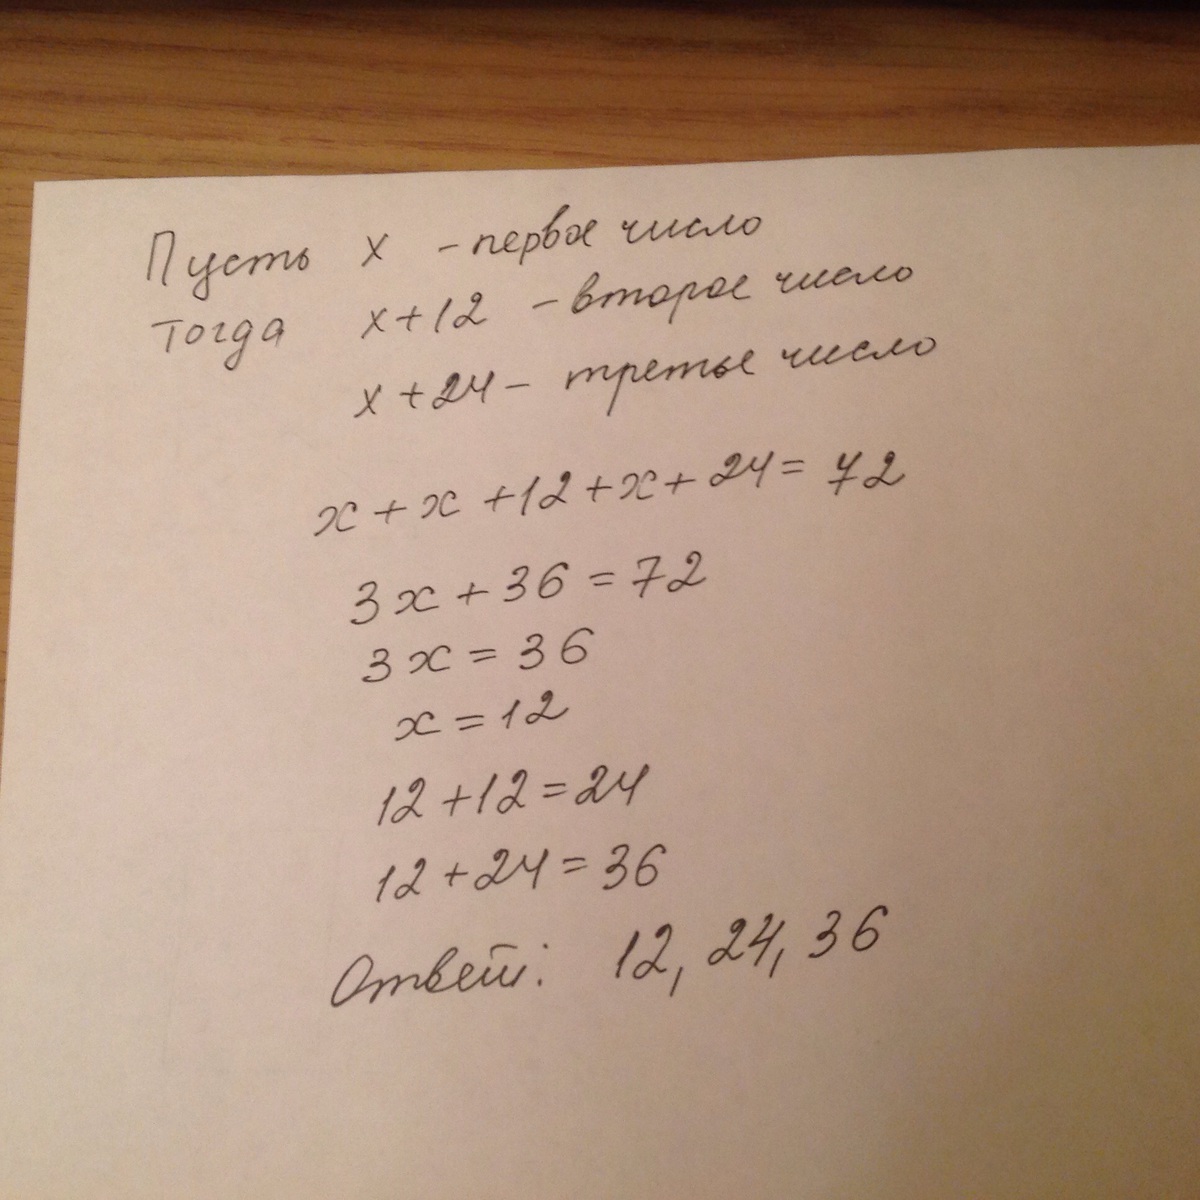 Пусть x - первое число
тогда x+12 - второе число
x+24 - третье число
x + x + 12 + x + 24 = 72
3x + 36 = 72
3x = 36
x = 12
12 + 12 = 24
12 + 24 = 36
Ответ: 12, 24, 36